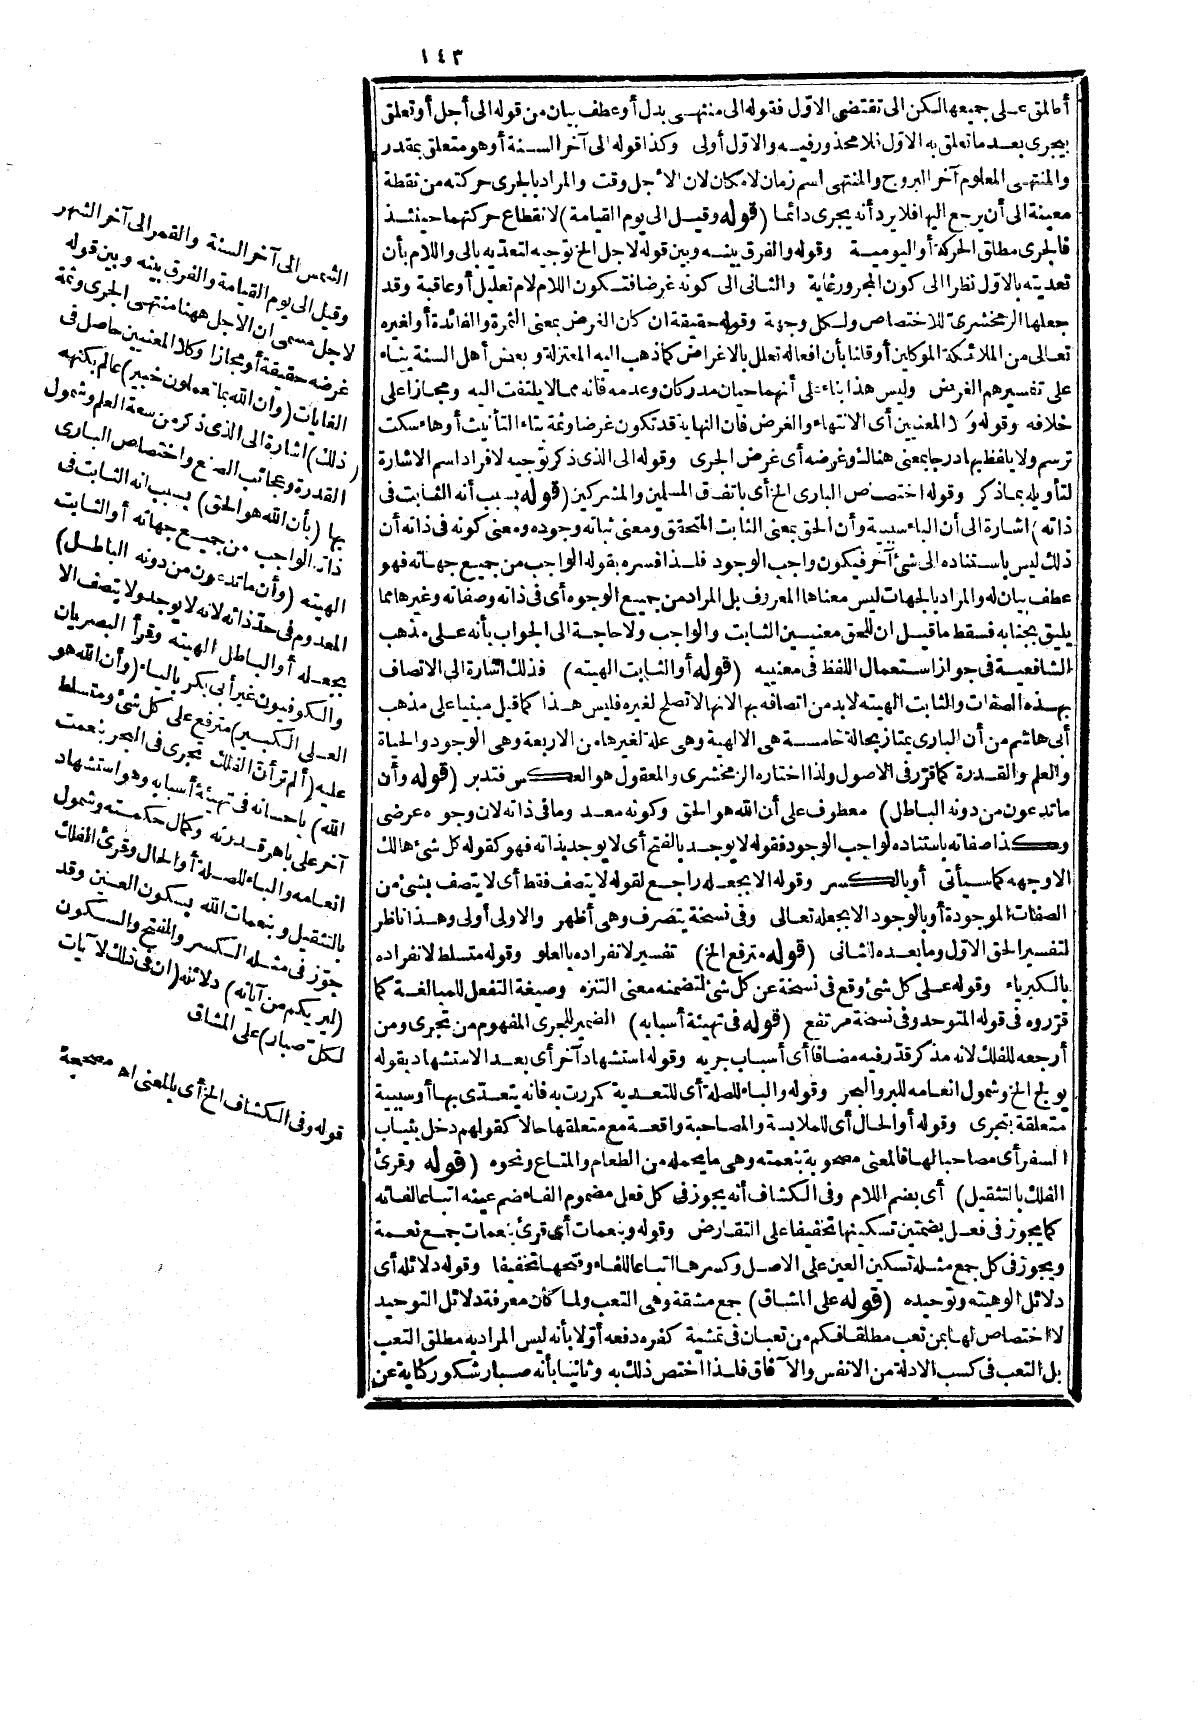 ١٤٣
أطلق على جميعها لكن الى تقتضى الاوّل فقوله الى منتهى بدل أو عطف بيان من قوله الى أجل أو تعلق
بيجرى بعد ما تعلق به الاوّل فلا محذور فيه والاوّل أولى وكذا قوله الى آخر السنة أو هو متعلق بمقدر
والمنتهى المعلوم آخر البروج والمنتهى اسم زمان لا مكان لان الاجل وقت والمراد بالجرى حركته من نقطة
معينة الى أن يرجع اليها فلا يرد أنه يجرى دائما (قوله وقيل الى يوم القيامة) لانقطاع حركتهما حينئذ
فالجرى مطلق الحركة أو اليومية وقوله والفرق بينه وبين قوله لاجل الخ توجيه لتعديه بالى واللام بأن
تعديته بالاوّل نظرا الى كون المجرور غاية والثانى الى كونه غرضا فتكون اللام لام تعليل أو عاقبة وقد
جعلها الزمخشرى للاختصاص ولكل وجهة وقوله حقيقة ان كان الغرض بمعنى الثمرة والفائدة أو لغيره
تعالى من الملائكة الموكلين أو قلنا بأن افعاله تعلل بالاغراض كما ذهب اليه المعتزلة وبعض أهل السنة بناء
على تفسيرهم الغرض وليس هذا بناء على أنهما حيان مدركان وعدمه فانه مما لا يلتفت اليه ومجازا على
خلافه وقوله وكلا المعنيين أى الانتهاء والغرض فان النهاية قد تكون غرضا وثمة بتاء التأنيث أو هاء سكت
ترسم ولا يلفظ بها درجا بمعنى هنالك وغرضه أى غرض الجرى وقوله الى الذى ذكر توجيه لافراد اسم الاشارة
لتأويله بما ذكر وقوله اختصاص البارى الخ أى باتفاق المسلمين والمشركين (قوله بسبب أنه الثابت فى
ذاته) اشارة الى أن الباء سببية وأن الحق بمعنى الثابت المتحقق ومعنى ثباته وجوده ومعنى كونه فى ذاته أن
ذلك ليس باستناده الى شئ آخر فيكون واجب الوجود فلذا فسره بقوله الواجب من جميع جهاته فهو
عطف بيان له والمراد بالجهات ليس معناها المعروف بل المراد من جميع الوجوه أى فى ذاته وصفاته وغيرها مما
يليق بجنابه فسقط ما قيل ان للحق معنيين الثابت والواجب ولا حاجة الى الجواب بأنه على مذهب
الشافعية فى جواز استعمال اللفظ فى معنييه (قوله أو الثابت الهيته) فذلك اشارة الى الاتصاف
بهذه الصفات والثابت الهيته لا بد من اتصافه بها لانها لا تصلح لغيره فليس هذا كما قيل مبنيا على مذهب
أبى هاشم من أن البارى يمتاز بحالة خامسة هى الالهية وهى علة لغيرها من الاربعة وهى الوجود والحياة
والعلم والقدرة كما قرّر فى الاصول ولذا اختاره الزمخشرى والمعقول هو العكس فتدبر (قوله وأن
ما تدعون من دونه الباطل) معطوف على أن الله هو الحق وكونه معدوما فى ذاته لان وجوده عرضى
وكذا صفاته باستناده لواجب الوجود فقوله لا يوجد بالفتح أى لا يوجد بذاته فهو كقوله كل شئ هالك
الا وجهه كما سيأتى أو بالكسر وقوله الا بجعله راجع لقوله لا يتصف فقط أى لا يتصف بشئ من
الصفات الموجودة أو بالوجود الا بجعله تعالى وفى نسخة يتصرف وهى أظهر والاولى أولى وهذا ناظر
لتفسير الحق الاول وما بعده للثانى (قوله مترفع الخ) تفسير لانفراده بالعلو وقوله متسلط لانفراده
بالكبرياء وقوله على كل شئ وقع فى نسخة عن كل شئ لتضمنه معنى التنزه وصيغة التفعل للمبالغة كما
قرّروه فى قوله المتوحد وفى نسخة مرتفع (قوله فى تهيئة أسبابه) الضمير للجرى المفهوم من تجرى ومن
أرجعه للفلك لانه مذكر قدّر فيه مضافا أى أسباب جريه وقوله استشهاد آخر أى بعد الاستشهاد بقوله
يولج الخ وشمول انعامه للبر والبحر وقوله والباء للصلة أى للتعدية كمررت به فانه يتعدّى بها أو سببية
متعلقة بتجرى وقوله أو الحال أى للملابسة والمصاحبة واقعة مع متعلقها حالا كقولهم دخل بثياب
السفر أى مصاحبا لها فالمعنى مصحوبة بنعمته وهى ما يحمله من الطعام والمتاع ونحوه (قوله وقرئ
الفلك بالتثقيل) أى بضم اللام وفى الكشاف أنه يجوز فى كل فعل مضموم الفاء ضم عينه اتباعا لفائه
كما يجوز فى فعل بضمتين تسكينها تخفيفا على التقارض وقوله وبنعمات أى قرئ بنعمات جمع نعمة
ويجوز فى كل جمع مثله تسكين العين على الاصل وكسرها اتباعا للفاء وفتحها تخفيفا وقوله دلائله أى
دلائل الوهيته وتوحيده (قوله على المشاق) جمع مشقة وهى التعب ولما كان معرفة دلائل التوحيد
لا اختصاص لها بمن تعب مطلقا فكم من تعبان فى تمشية كفره دفعه أوّلا بأنه ليس المراد به مطلق التعب
بل التعب فى كسب الادلة من الانفس والآفاق فلذا اختص ذلك به وثانيا بأنه صبار شكور كناية عن
الشمس الى آخر السنة والقمر الى آخر الشهر
وقيل الى يوم القيامة والفرق بينه وبين قوله
لاجل مسمى ان الاجل ههنا منتهى الجرى وثمة
غرضه حقيقة أو مجازا وكلا المعنيين حاصل فى
الغايات (وأن الله بما تعملون خبير) عالم بكنهه
(ذلك) اشارة الى الذى ذكر من سعة العلم وشمول
القدرة وعجائب الصنع واختصاص البارى
بها (بأن الله هو الحق) بسبب انه الثابت فى
ذاته الواجب من جميع جهاته أو الثابت
الهيته (وأن ما تدعون من دونه الباطل)
المعدوم فى حدّ ذاته لانه لا يوجد ولا يتصف الا
بجعله أو الباطل الهيته وقرأ البصريان
والكوفيون غير أبى بكر بالياء (وأن الله هو
العلى الكبير) مترفع على كل شئ ومتسلط
عليه (ألم تر أن الفلك تجرى فى البحر بنعمت
الله) باحسانه فى تهيئة أسبابه وهو استشهاد
آخر على باهر قدرته وكمال حكمته وشمول
انعامه والباء للصلة أو الحال وقرئ الفلك
بالتثقيل وبنعمات الله بسكون العين وقد
جوّز فى مثله الكسر والفتح والسكون
(ليريكم من آياته) دلائله (ان فى ذلك لآيات
لكل صبار) على المشاق
قوله وفى الكشاف الخ أى بالمعنى اه مصححه